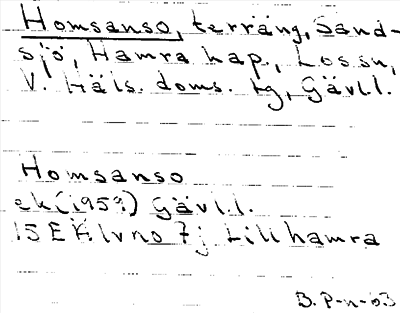 Homsanso, terräng, Sand-
sjö, Hamra kap., Los sn,
V. Häls. doms. tg, Gävl.l.
Homsanso
ek (1959) Gävl.l.
15E Älvno 7j Lillhamra
B. P-n -63